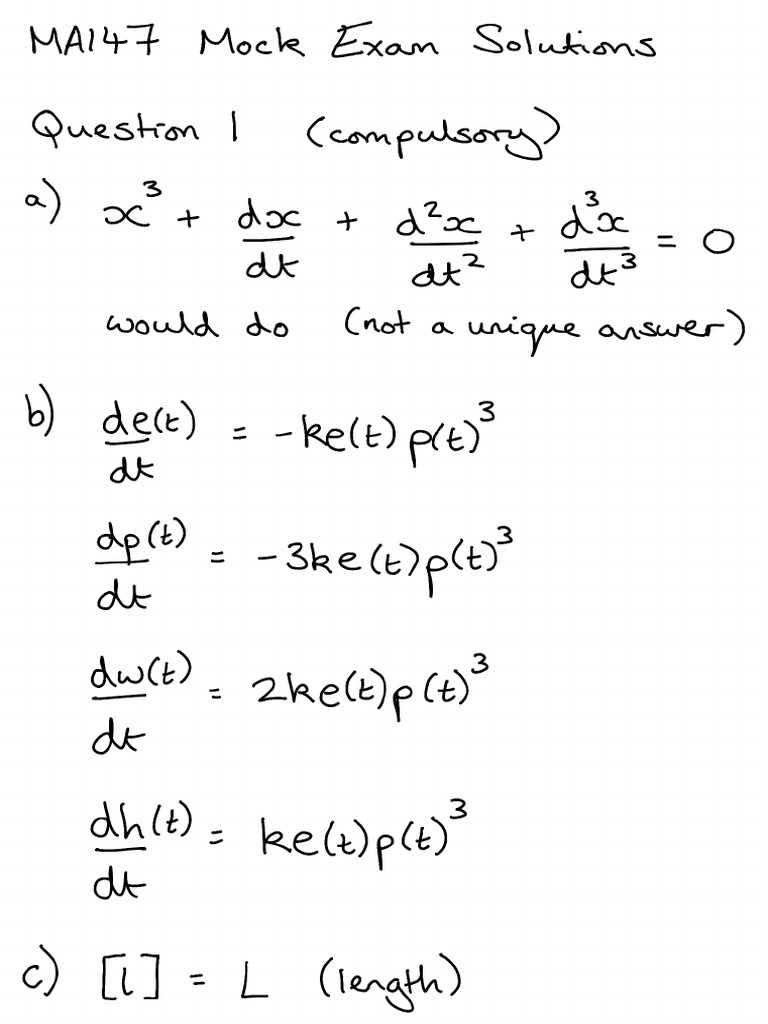 MA147 Mock Exam Solutions
Question 1 (compulsory)
a) x³ + dx/dt + d²x/dt² + d³x/dt³ = 0
would do (not a unique answer)
b) de(t)/dt = -ke(t)p(t)³
dp(t)/dt = -3ke(t)p(t)³
dw(t)/dt = 2ke(t)p(t)³
dh(t)/dt = ke(t)p(t)³
c) [l] = L (length)